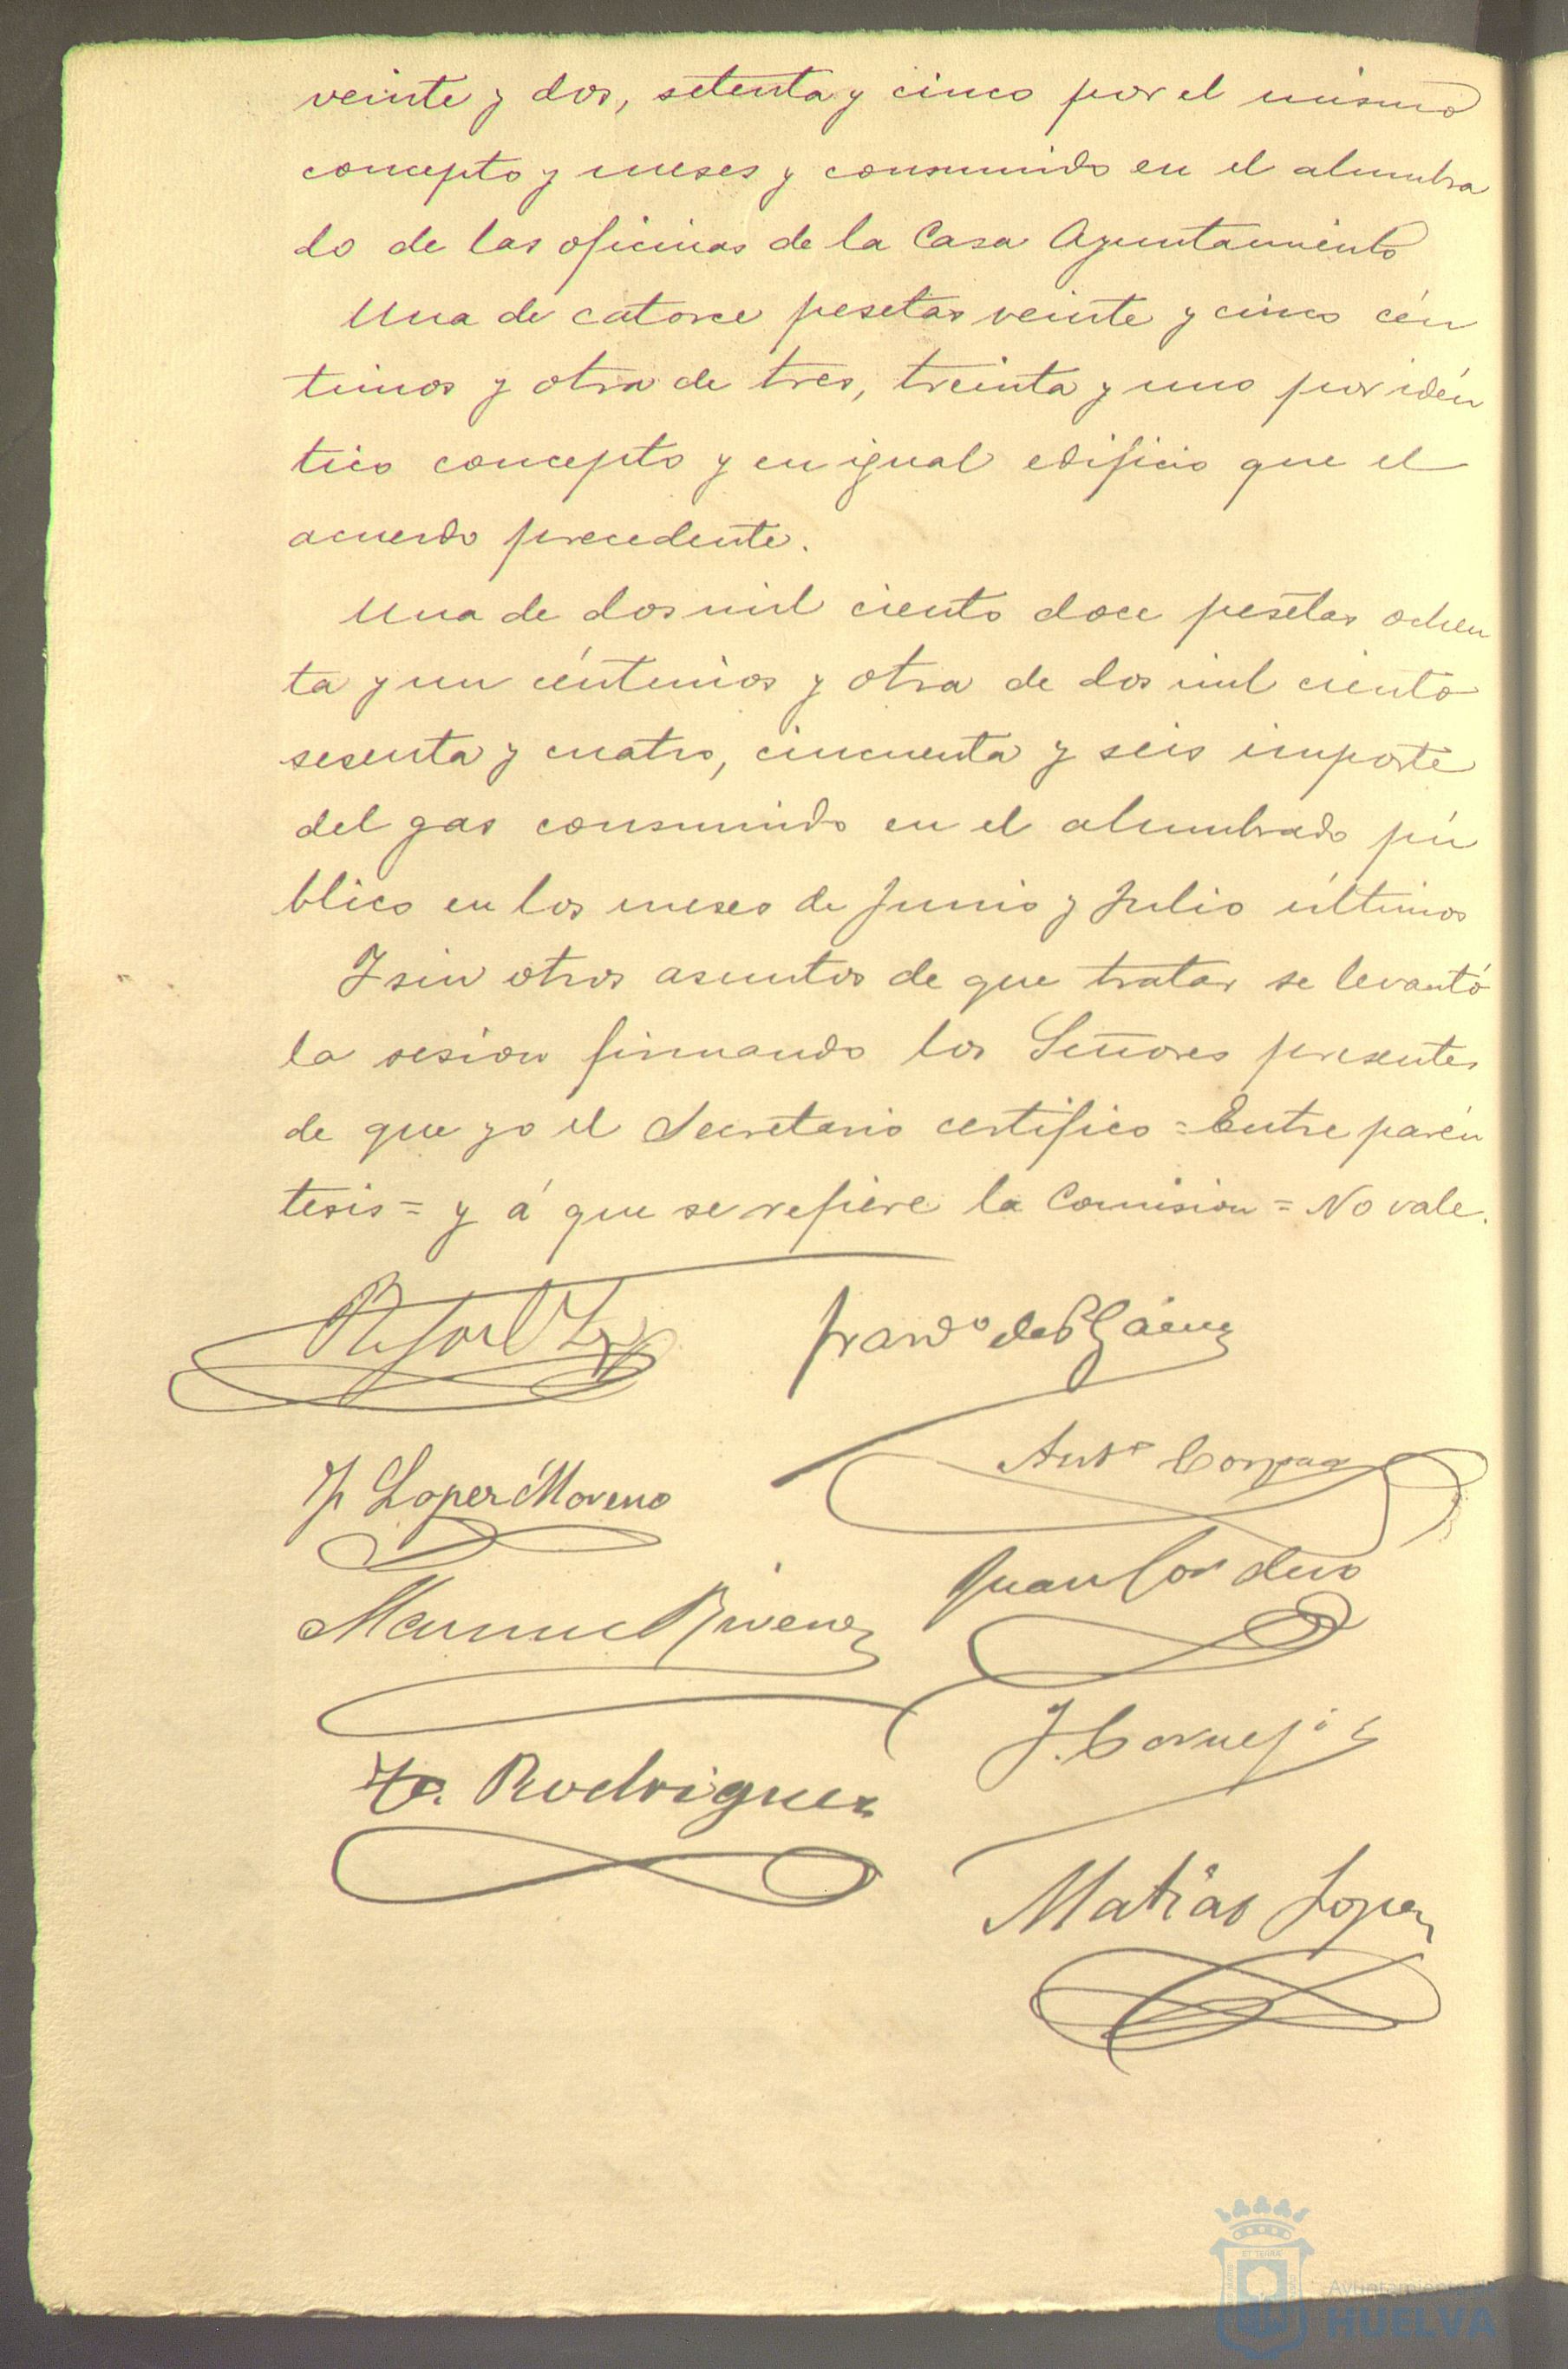 veinte y dos, setenta y cinco por el mismo
concepto y meses y consumido en el alumbra
do de las oficinas de la Casa Ayuntamiento
Una de catorce pesetas veinte y cinco cén
timos y otra de tres, treinta y uno por idén
tico concepto y en igual edificio que el
acuerdo precedente.
Una de dos mil ciento doce pesetas ochen
ta y un céntimos y otra de dos mil ciento
sesenta y cuatro, cincuenta y seis importe
del gas consumido en el alumbrado pú
blico en los meses de Junio y Julio últimos
Y sin otros asuntos de que tratar se levantó
la sesion firmando los Señores presentes
de que yo el Secretario certifico = Entre parén
tesis = y á que se refiere la Comision = No vale.
Rafael
Antº
J. Lopez Moreno
Juan Cordero
Manuel
J. Cornejo
Rodriguez
Matias Lopez
Ayuntamiento de
HUELVA